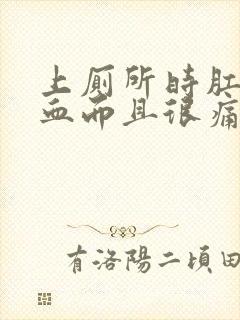 上厕所时肛
血而且很痛
有洛陽二頃田